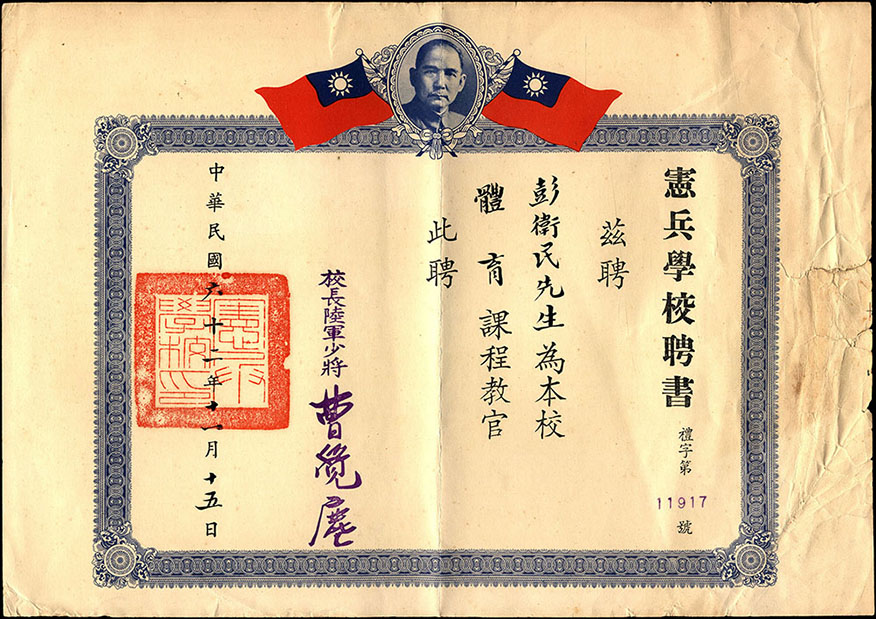 憲兵學校聘書
禮字第
11917
號
茲聘
彭衛民先生為本校
體育課程教官
此聘
校長陸軍少將曹
中華民國六十二年十一月十五日
憲兵
學校印